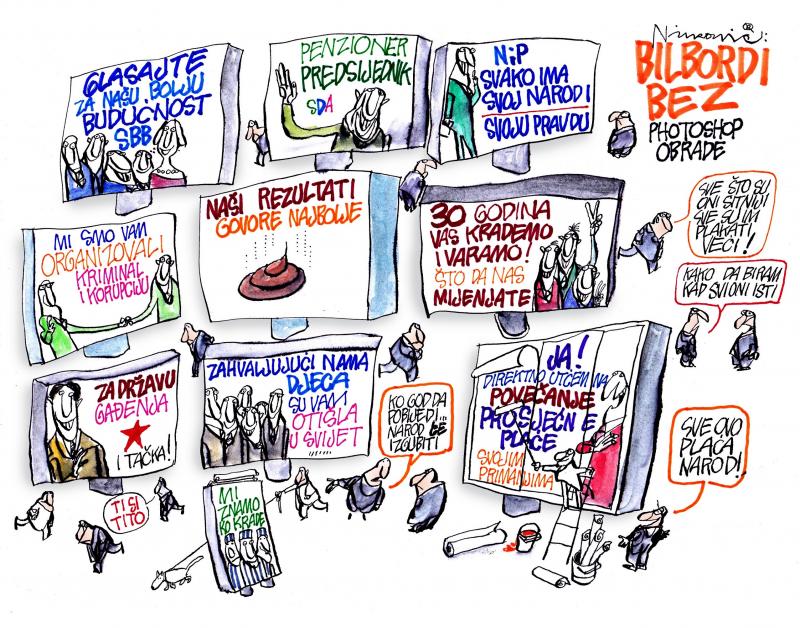 Ninković:
BILBORDI
BEZ
PHOTOSHOP
OBRADE
GLASAJTE
ZA NAŠU BOLJU
BUDUĆNOST
SBB
PENZIONER
PREDSIJEDNIK
SDA
NiP
SVAKO IMA
SVOJ NAROD I
SVOJU PRAVDU
MI SMO VAM
ORGANIZOVALI
KRIMINAL
I KORUPCIJU
NAŠI REZULTATI
GOVORE NAJBOLJE
30 GODINA
VAS KRADEMO
I VARAMO!
ŠTO DA NAS
MIJENJATE
SVE ŠTO SU
ONI SITNIJI
SVE SU IM
PLAKATI
VEĆI!
KAKO DA BIRAM
KAD SVI ONI ISTI
ZA DRŽAVU
GAĐENJA
I TAČKA!
ZAHVALJUJUĆI NAMA
DJECA
SU VAM
OTIŠLA
U SVIJET
KO GOD DA
POBIJEDI...
NAROD ĆE
IZGUBITI
JA!
DIREKTNO UTIČEM NA
POVEĆANJE
PROSJEČNE
PLAĆE
SVOJIM
PRIMANJIMA
SVE OVO
PLAĆA
NAROD!..
TI SI
TITO
MI
ZNAMO
KO KRADE